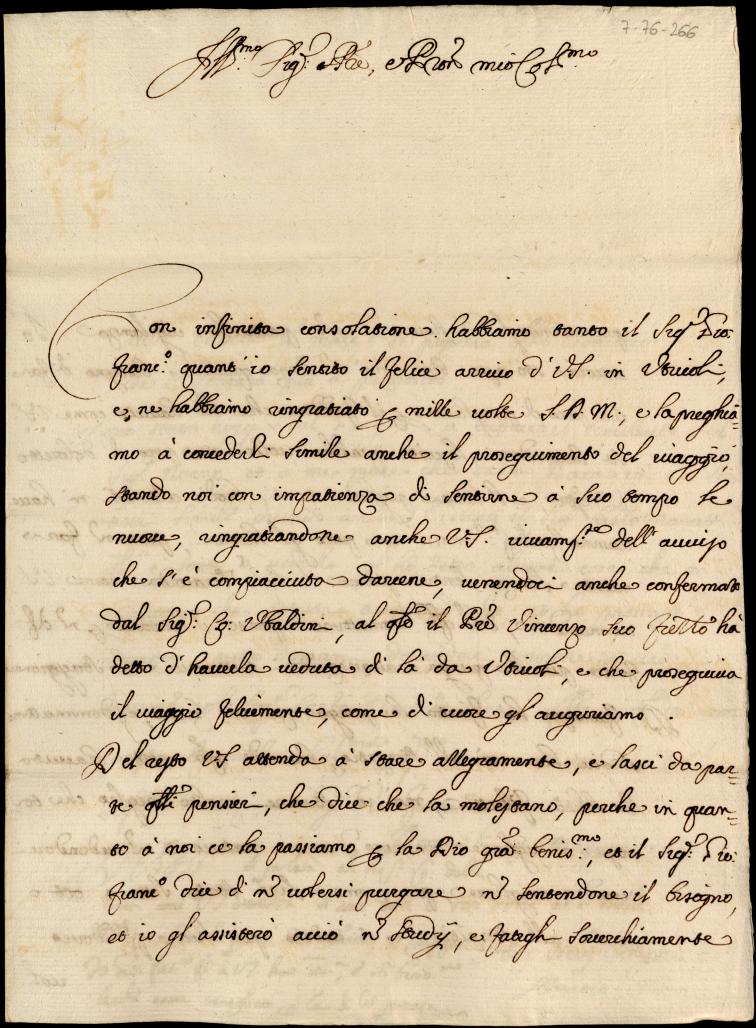 7-76-266
Ill.mo Sig.r P̃re, e P̃ron mio Col.mo
Con infinita consolatione habbiamo tanto il Sig.r Gio:
Franc.o quant' io sentito il felice arrivo d' V.S. in Otricoli,
e ne habbiamo ringratiato p mille volte S. D. M., e la preghia=
mo à concederli simile anche il proseguimento del viaggio,
stando noi con impatienza di sentirne à suo tempo le
nuove, ringratiandone anche V.S. vivam.te dell' avviso
che s' è compiacciuta darcene, venendoci anche confermato
dal Sig.r Co: Ubaldini, al qñto il P̃re Vincenzo suo fr̃ello hà
detto d' haverla veduta di là da Otricoli, e che proseguiva
il viaggio felicemente, come di cuore gl' auguriamo.
Del resto V.S. attenda à stare allegramente, e lasci da par=
te qsti pensieri, che dice che la molestano, perche in quan=
to à noi ce la passiamo p la Dio gra benis.mo, et il Sig.r Gio:
Franc.o dice di nõ volersi purgare nõ sentendone il bisogno,
et io gl' assisterò acciò nõ studij, e fatigh soverchiamente